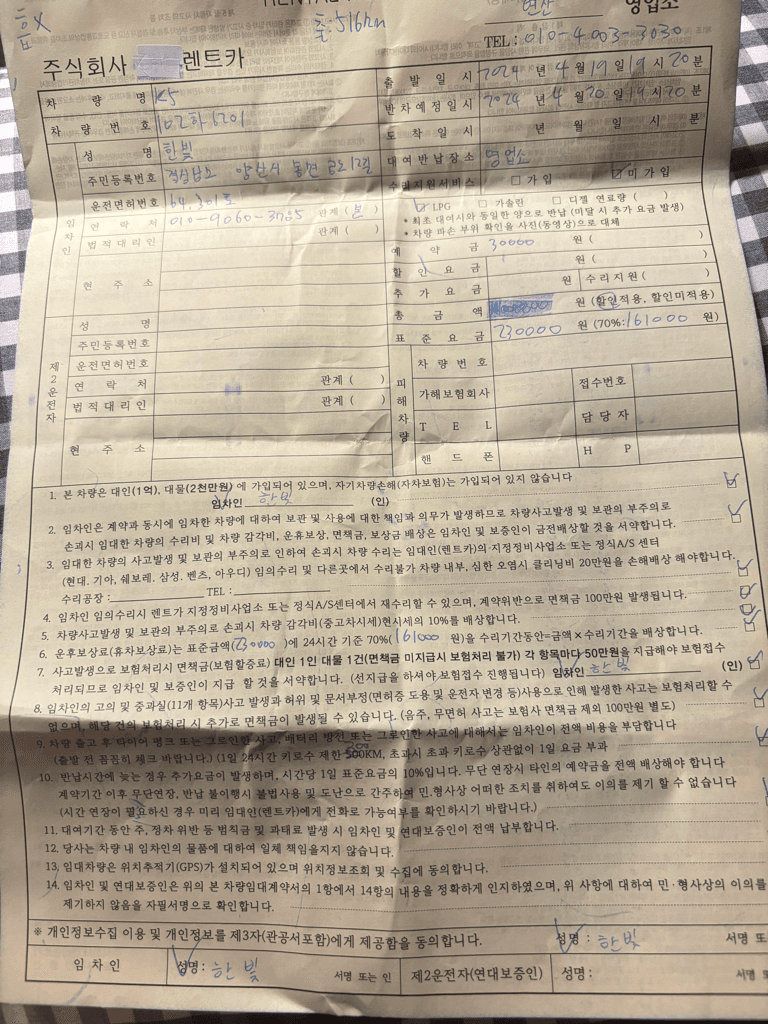 흡X
출: 516km
연산 영업소
TEL: 010-4003-3030
주식회사 렌트카
차 량 명 K5
출 발 일 시 2024 년 4 월 19 일 19 시 20 분
차 량 번 호 102하6201
반차예정일시 2024 년 4 월 20 일 19 시 20 분
도 착 일 시 년 월 일 시 분
임차인
성 명 한빛
대여반납장소 영업소
주민등록번호
양산시 동면
수리지원서비스 □ 가 입 ☑ 미 가 입
운전면허번호
☑ LPG □ 가솔린 □ 디젤 연료량 ( )
연 락 처 관계 ( 본 )
* 최초 대여시와 동일한 양으로 반납 (미달 시 추가 요금 발생)
* 차량 파손 부위 확인을 사진(동영상)으로 대체
법적대리인 관계 ( )
예 약 금 30000 원 ( )
현 주 소
할 인 요 금 원 ( )
추 가 요 금 원 수리지원 ( )
총 금 액 원 (할인적용, 할인미적용)
표 준 요 금 230000 원 (70%: 161000 원)
제2운전자
성 명
주민등록번호
운전면허번호
연 락 처 관계 ( )
법적대리인 관계 ( )
현 주 소
피해차량
차 량 번 호
가해보험회사 접수번호
T E L 담 당 자
핸 드 폰 H P
1. 본 차량은 대인(1억), 대물(2천만원) 에 가입되어 있으며, 자기차량손해(자차보험)는 가입되어 있지 않습니다
임차인 한빛 (인)
2. 임차인은 계약과 동시에 임차한 차량에 대하여 보관 및 사용에 대한 책임과 의무가 발생하므로 차량사고발생 및 보관의 부주의로
손괴시 임대한 차량의 수리비 및 차량 감각비, 운휴보상, 면책금, 보상금 배상은 임차인 및 보증인이 금전배상할 것을 서약합니다.
3. 임대한 차량의 사고발생 및 보관의 부주의로 인하여 손괴시 차량 수리는 임대인(렌트카)의 지정정비사업소 또는 정식A/S 센터
(현대. 기아, 쉐보레. 삼성. 벤츠, 아우디) 임의수리 및 다른곳에서 수리불가 차량 내부, 심한 오염시 클리닝비 20만원을 손해배상 해야합니다.
수리공장 : TEL :
4. 임차인 임의수리시 렌트가 지정정비사업소 또는 정식A/S센터에서 재수리할 수 있으며, 계약위반으로 면책금 100만원 발생됩니다.
5. 차량사고발생 및 보관의 부주의로 손괴시 차량 감각비(중고차시세)현시세의 10%를 배상합니다.
6. 운후보상료(휴차보상료)는 표준금액(230000 )에 24시간 기준 70%( 161000 원)을 수리기간동안=금액×수리기간을 배상합니다.
7. 사고발생으로 보험처리시 면책금(보험할증료) 대인 1인 대물 1건(면책금 미지급시 보험처리 불가) 각 항목마다 50만원을 지급해야 보험접수
처리되므로 임차인 및 보증인이 지급 할 것을 서약합니다. (선지급을 하셔야.보험접수 진행됩니다) 임차인 한빛 (인)
8. 임차인의 고의 및 중과실(11개 항목)사고 발생과 허위 및 문서부정(면허증 도용 및 운전자 변경 등)사용으로 인해 발생한 사고는 보험처리할 수
없으며, 해당 건의 보험처리 시 추가로 면책금이 발생될 수 있습니다. (음주, 무면허 사고는 보험사 면책금 제외 100만원 별도)
9. 차량 출고 후 타이어 펑크 또는 그로인한 사고, 배터리 방전 또는 그로인한 사고에 대해서는 임차인이 전액 비용을 부담합니다
(출발 전 꼼꼼히 체크 바랍니다.) (1일 24시간 키로수 제한 500KM, 초과시 초과 키로수 상관없이 1일 요금 부과
10. 반납시간에 늦는 경우 추가요금이 발생하며, 시간당 1일 표준요금의 10%입니다. 무단 연장시 타인의 예약금을 전액 배상해야 합니다
계약기간 이후 무단연장, 반납 불이행시 불법사용 및 도난으로 간주하여 민.형사상 어떠한 조치를 취하여도 이의를 제기 할 수 없습니다
(시간 연장이 필요하신 경우 미리 임대인(렌트카)에게 전화로 가능여부를 확인하시기 바랍니다.)
11. 대여기간 동안 주, 정차 위반 등 범칙금 및 과태료 발생 시 임차인 및 연대보증인이 전액 납부합니다.
12. 당사는 차량 내 임차인의 물품에 대하여 일체 책임을지지 않습니다.
13. 임대차량은 위치추적기(GPS)가 설치되어 있으며 위치정보조회 및 수집에 동의합니다.
14. 임차인 및 연대보증인은 위의 본 차량임대계약서의 1항에서 14항의 내용을 정확하게 인지하였으며, 위 사항에 대하여 민·형사상의 이의를
제기하지 않음을 자필서명으로 확인합니다.
※ 개인정보수집 이용 및 개인정보를 제3자(관공서포함)에게 제공함을 동의합니다. 성명 : 한빛 서명 또
임 차 인 성명 : 한빛 서명 또는 인 제2운전자(연대보증인) 성명 : 서명 또